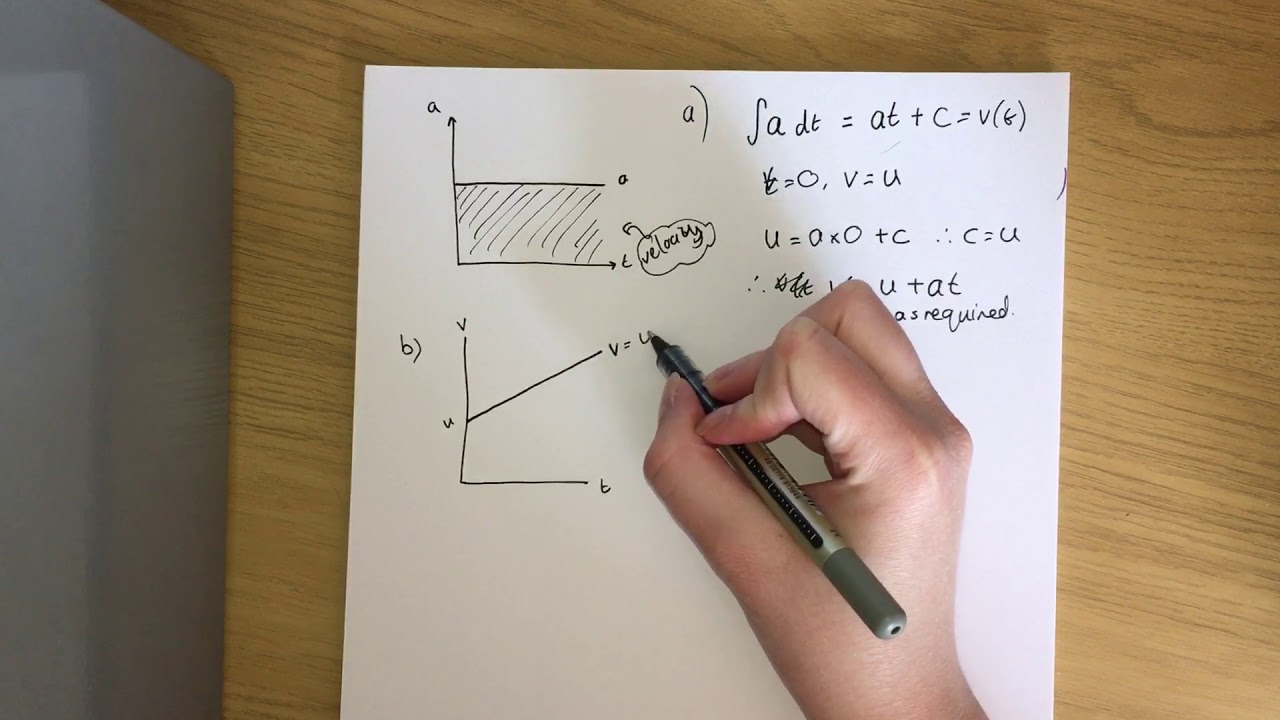 a
a
t
velocity
a) ∫a dt = at + c = v(t)
t=0, v=u
)
u = a×0 + c ∴ c = u
∴ u + at
as required.
b)
v
v = u
u
t